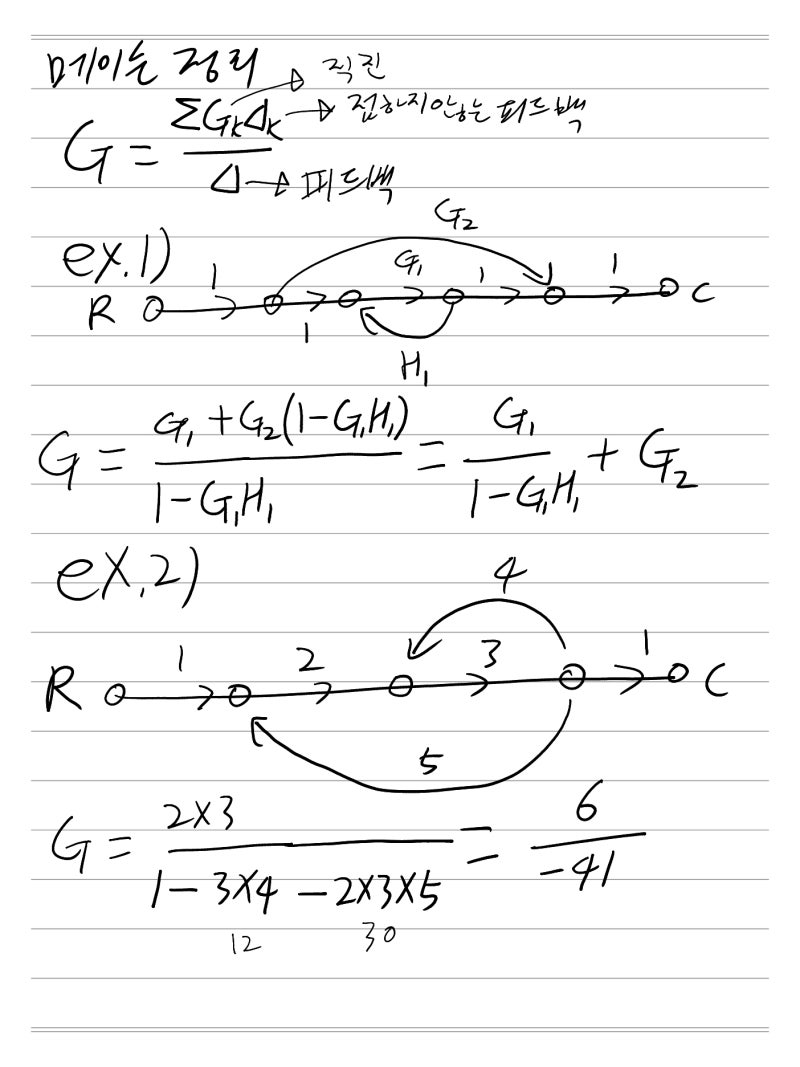 메이슨 정리
→ 직진
G = ΣGₖΔₖ / Δ → 접하지않는 피드백
→ 피드백
ex.1)
G₂
1 G₁ 1 1
R C
1
H₁
G = G₁+G₂(1-G₁H₁) / 1-G₁H₁ = G₁ / 1-G₁H₁ + G₂
ex.2)
4
1 2 3 1
R C
5
G = 2×3 / 1-3×4-2×3×5 = 6 / -41
12 30